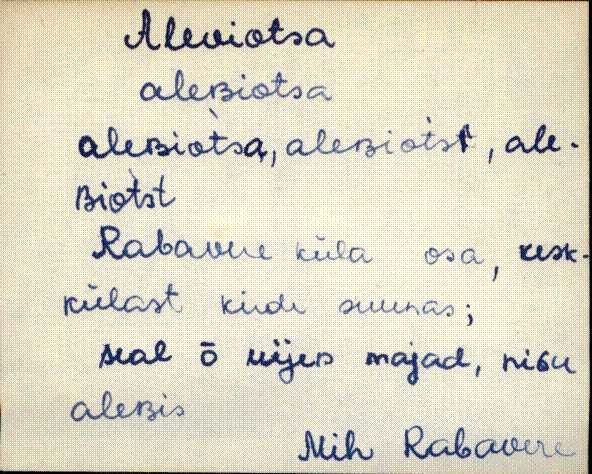 Aleviotsa
aleʙiotsa
aleʙiòtsa, aleʙiòtst, ale-
ʙiòtst
Rabavere küla osa, kesk-
külast kirde suunas;
seal ō majad, nisu
aleʙis
Mih Rabavere